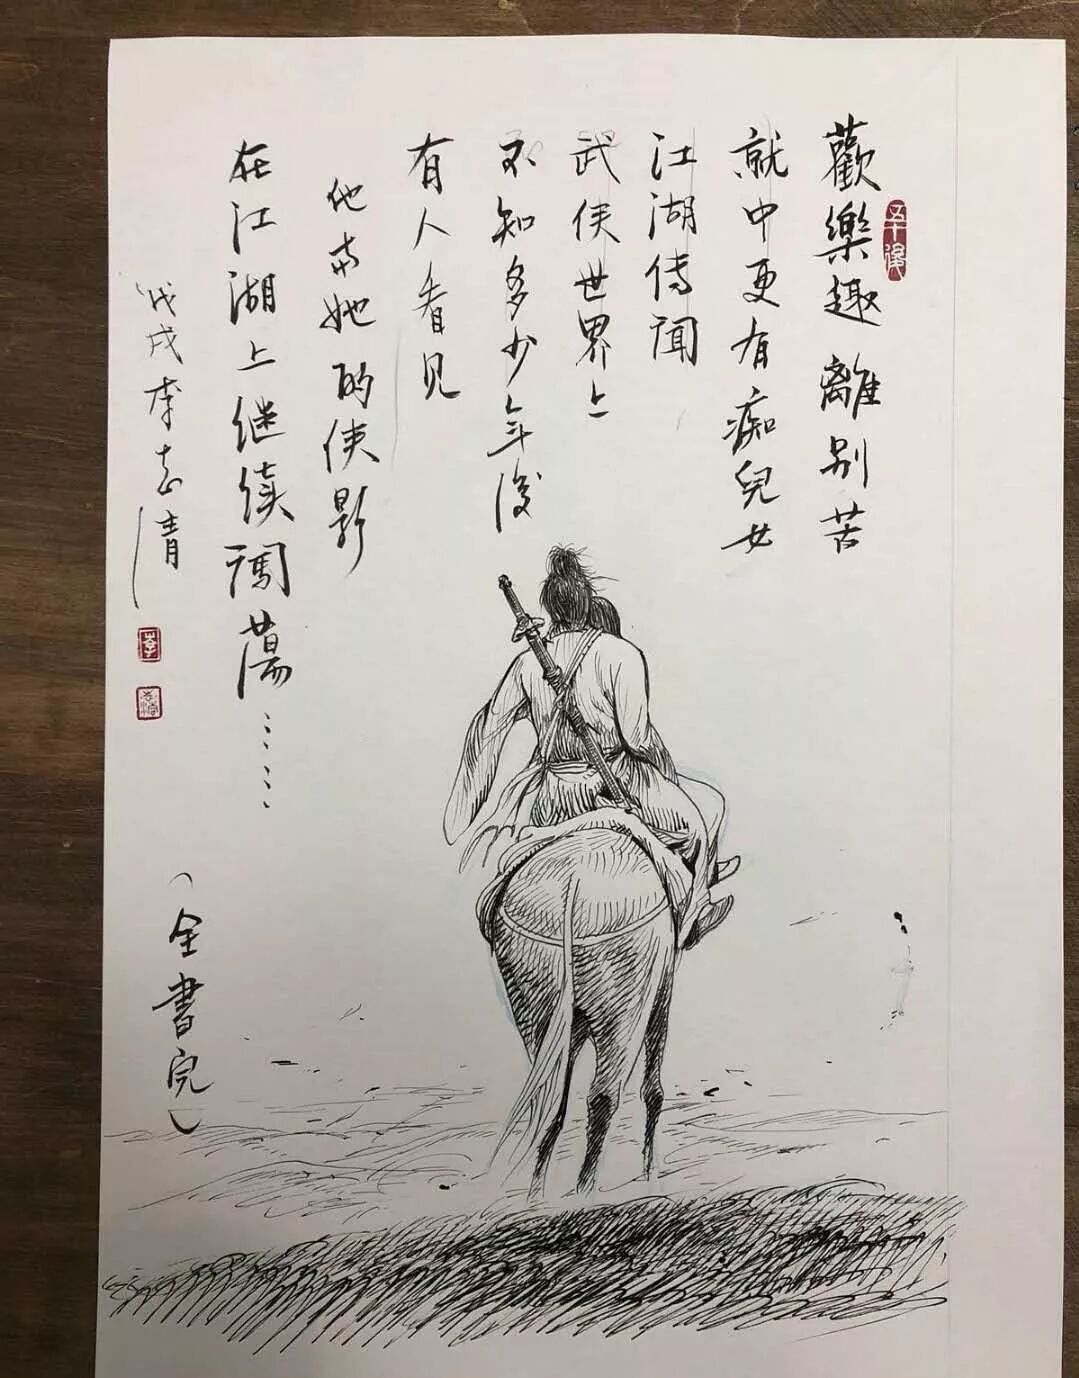 歡樂趣 離别苦
就中更有痴兒女
江湖傳聞
武侠世界上
不知多少年後
有人看見
他与她的侠影
在江湖上继续闖蕩……
戊戌李志清
(全書完)
李